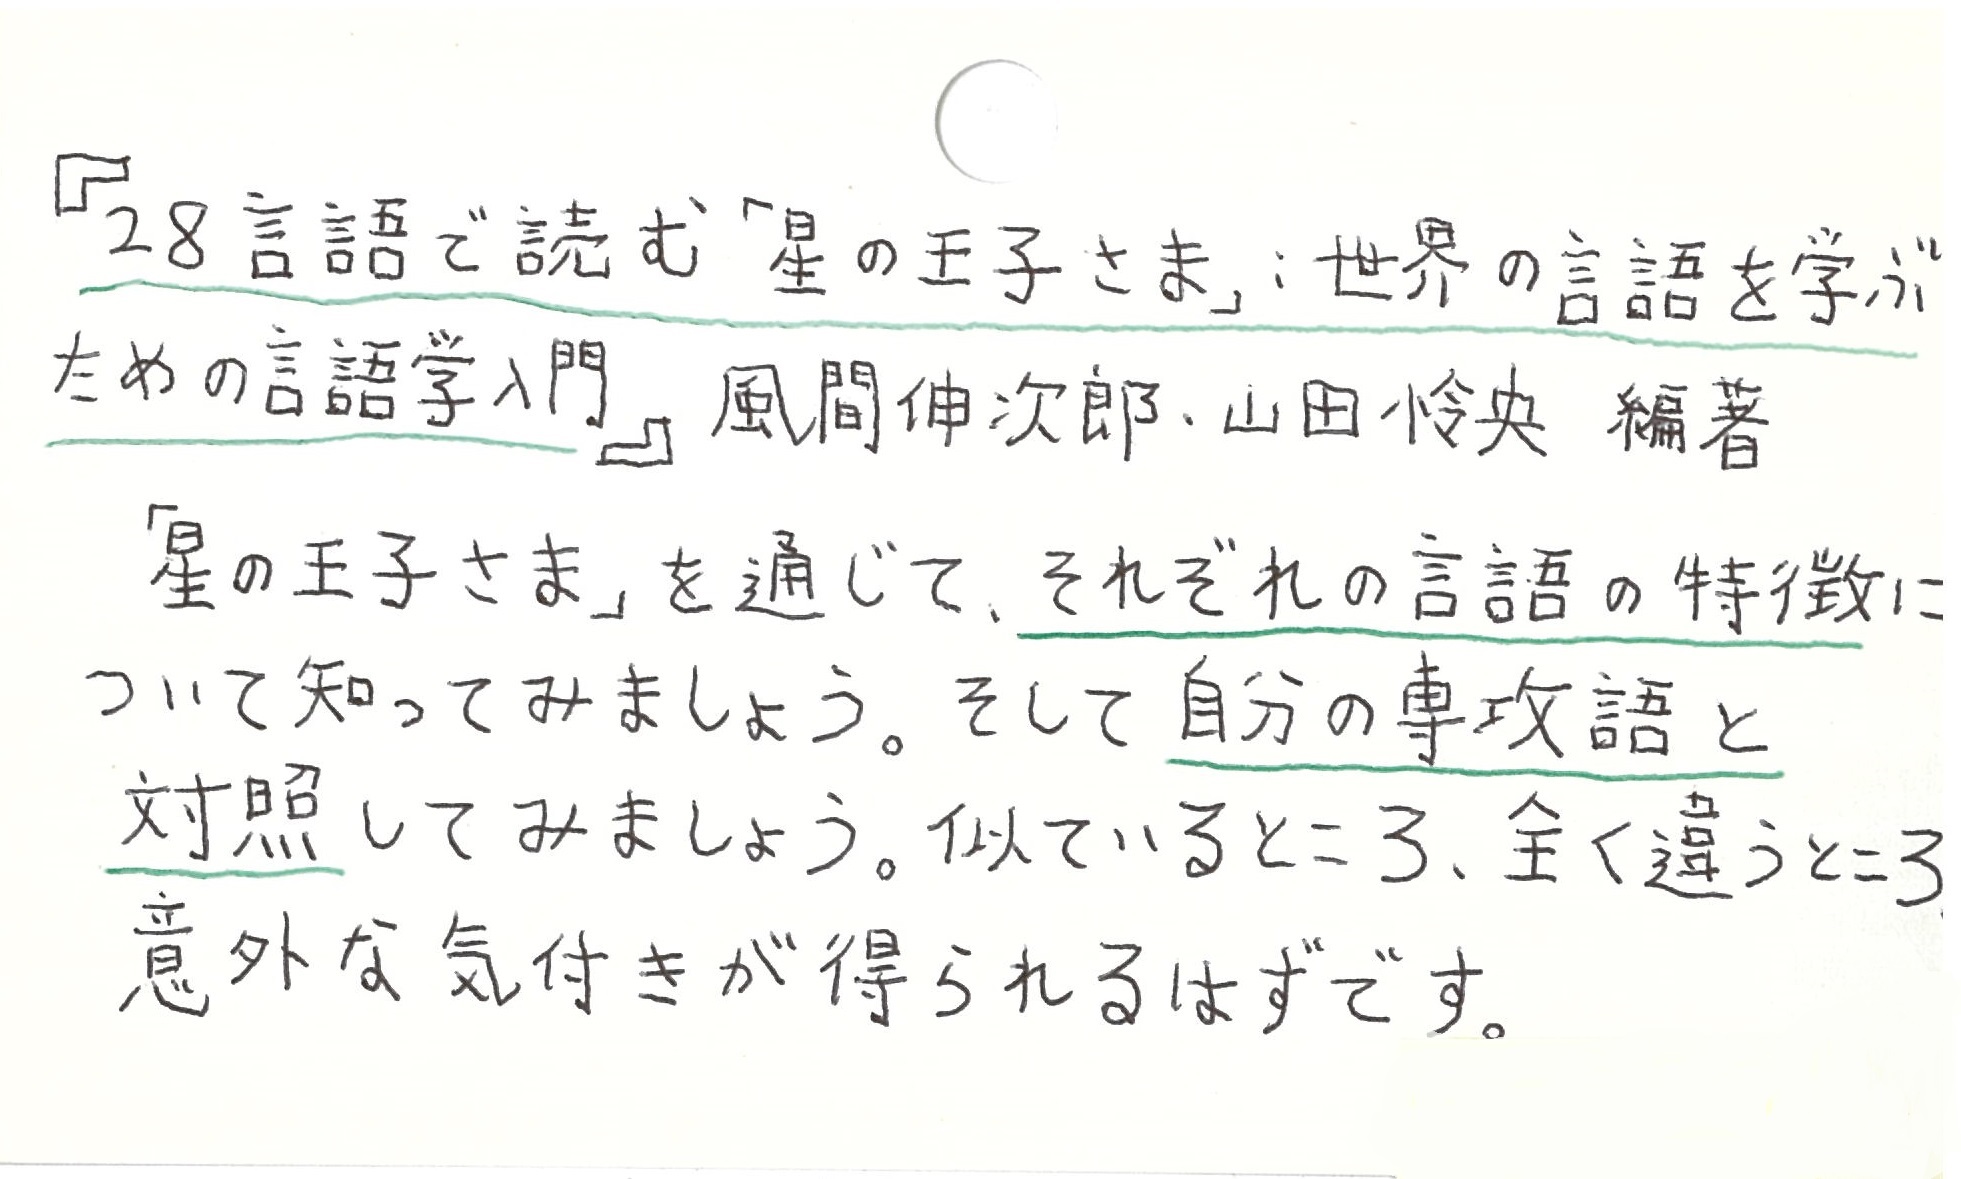 『28言語で読む「星の王子さま」:世界の言語を学ぶ
ための言語学入門』風間伸次郎・山田怜央 編著
「星の王子さま」を通じて、それぞれの言語の特徴に
ついて知ってみましょう。そして自分の専攻語と
対照してみましょう。似ているところ、全く違うところ、
意外な気付きが得られるはずです。